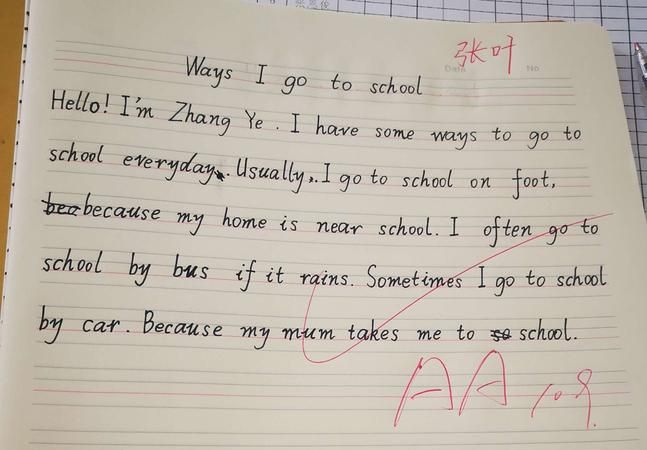 张叶
Date
No
Ways I go to school
Hello! I'm Zhang Ye. I have some ways to go to
school everyday. Usually, I go to school on foot,
because my home is near school. I often go to
school by bus if it rains. Sometimes I go to school
by car. Because my mum takes me to school.
AA